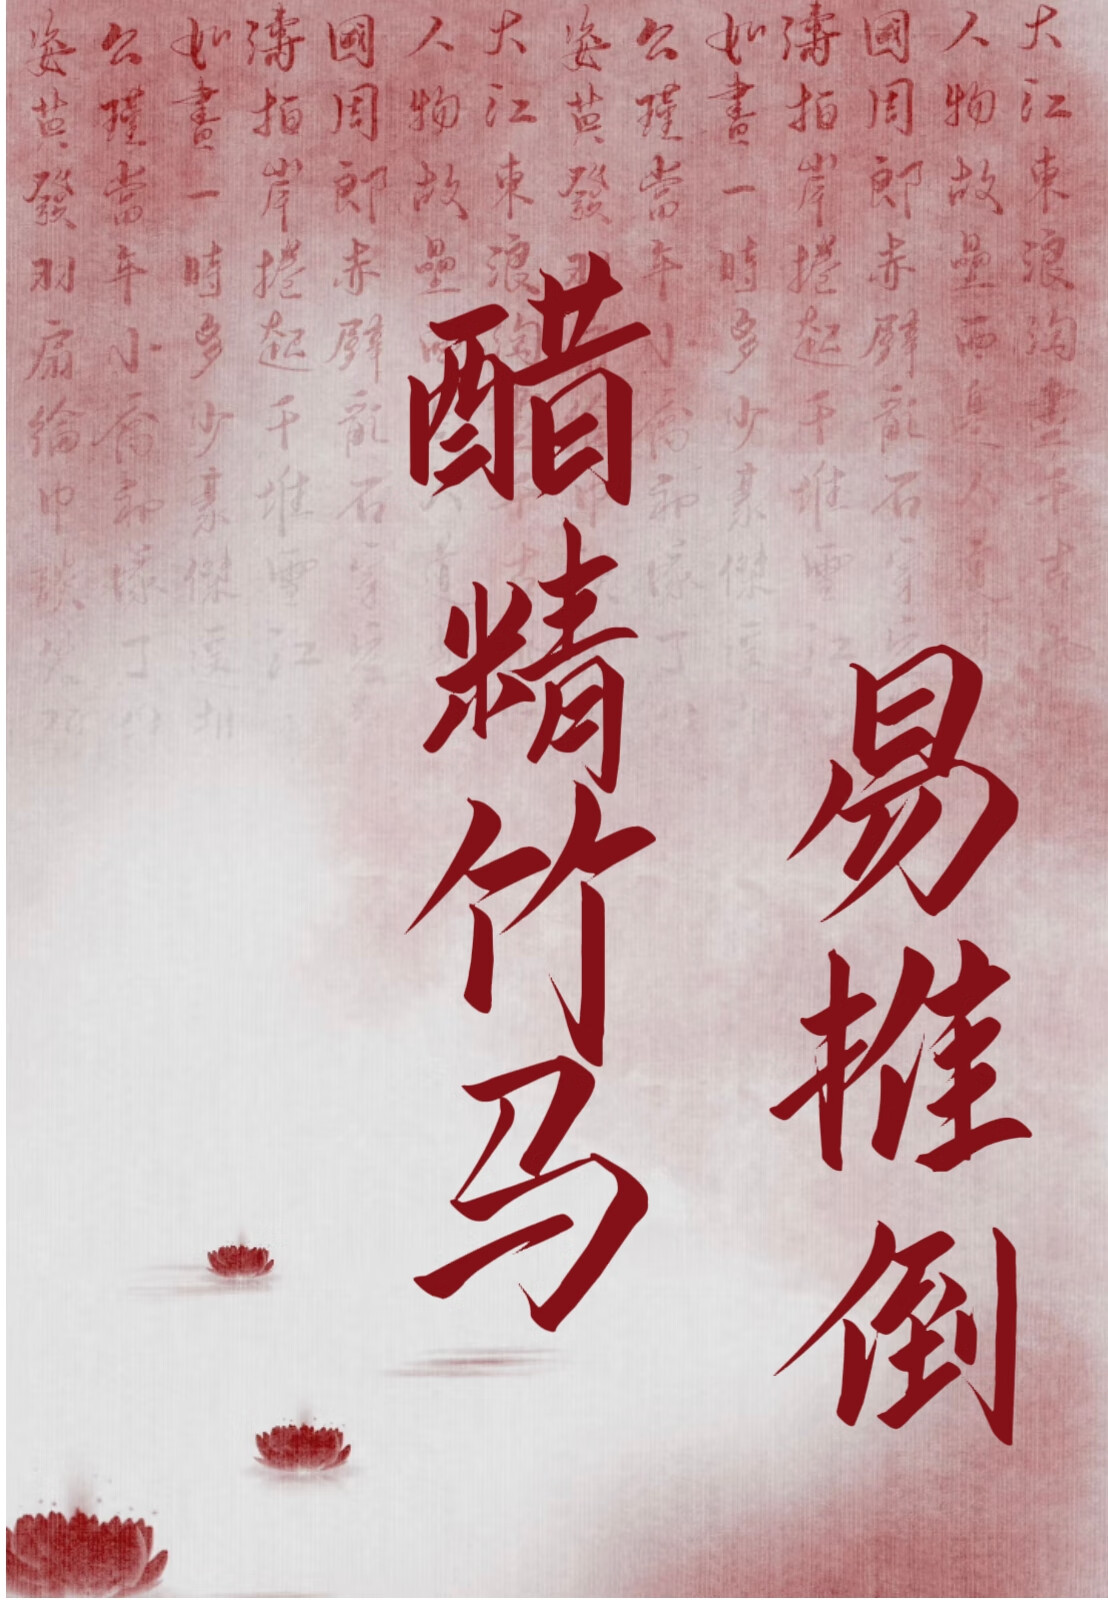 醋精竹马
易推倒
大江東浪淘盡千古
人物故壘西邊人道
國周郎赤壁亂石穿空
濤拍岸捲起千堆雪江
如畫一時多少豪傑遙想
公瑾當年小喬初嫁了
姿英發羽
大江東浪淘
人物故壘西
國周郎赤壁亂石穿空
濤拍岸捲起千堆雪江
如畫一時多少豪傑遙想
公瑾當年小喬初嫁了雄
姿英發羽扇綸巾談笑